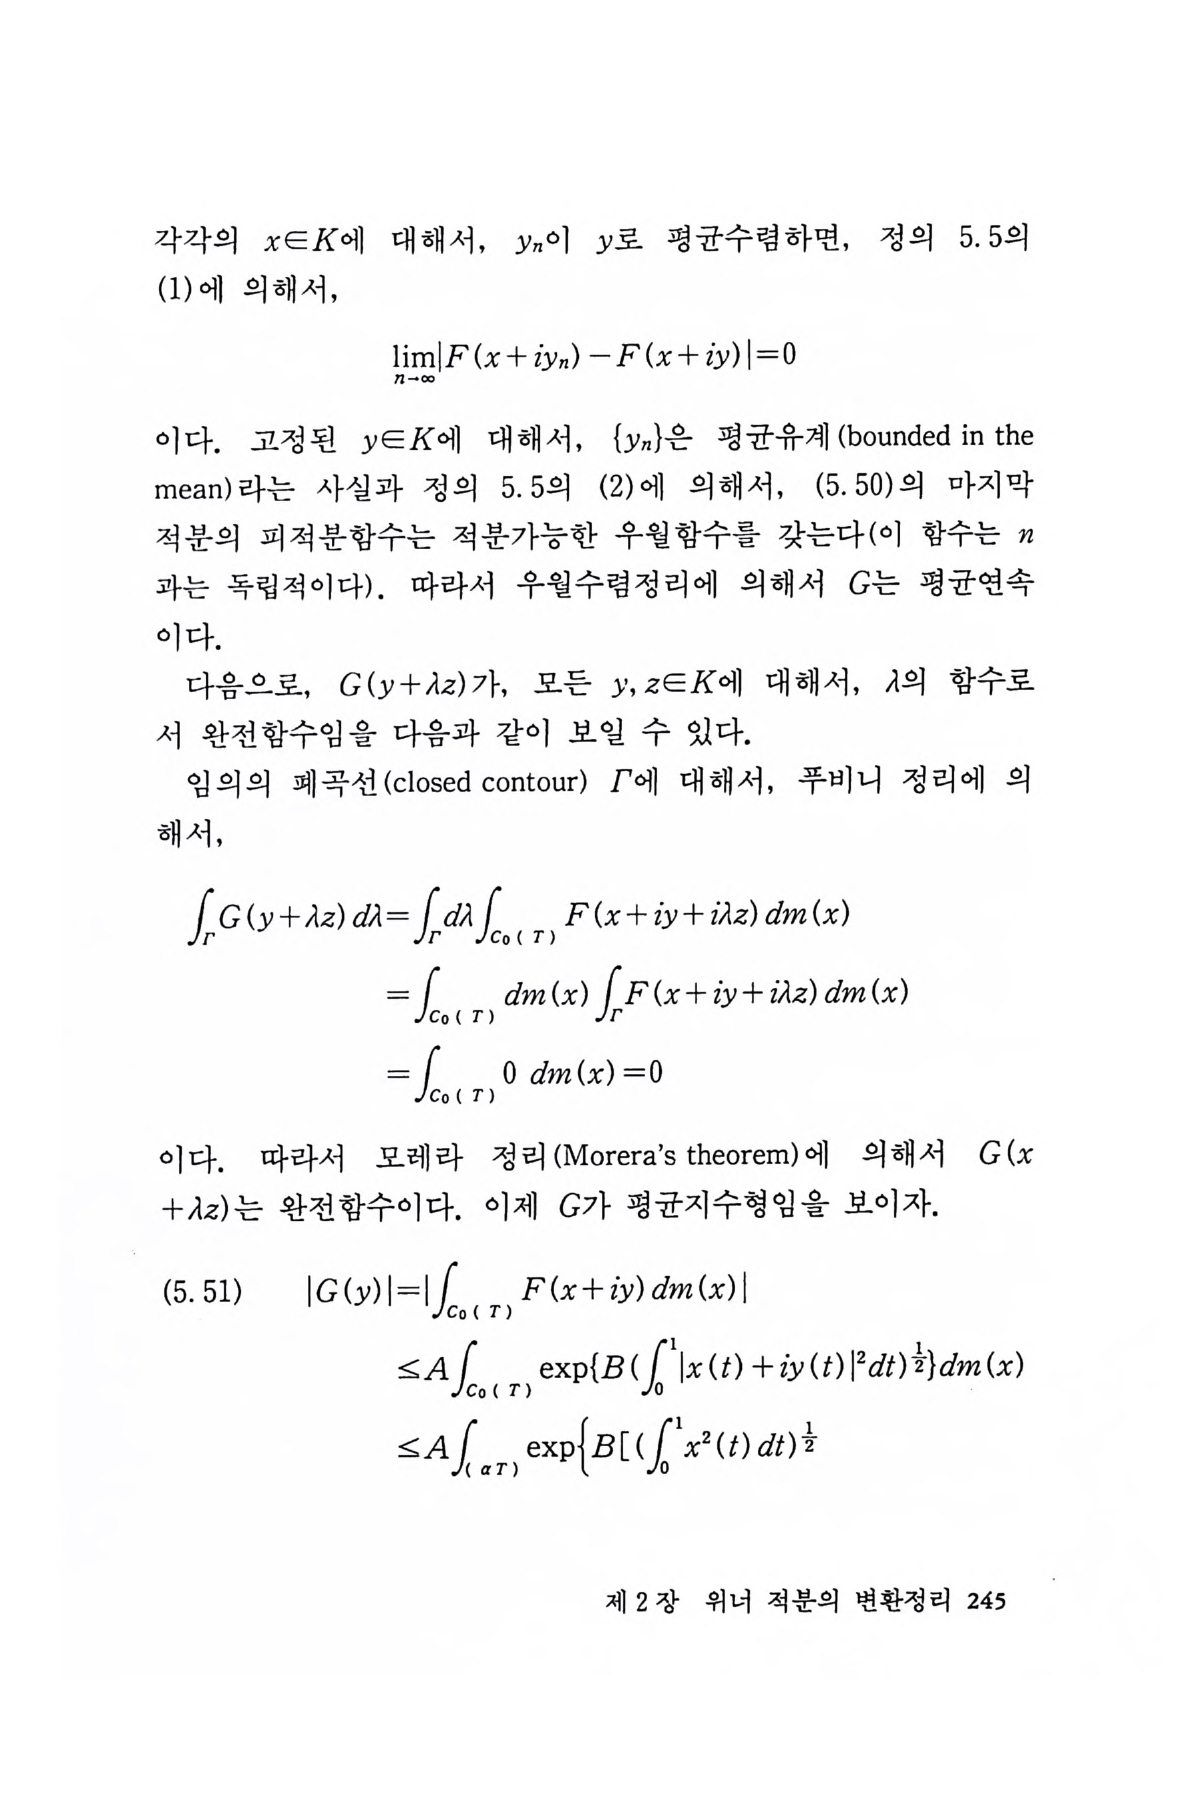 각각의 x∈K에 대해서, yₙ이 y로 평균수렴하면, 정의 5.5의
(1)에 의해서,
lim|F(x+iyₙ)−F(x+iy)|=0
n→∞
이다. 고정된 y∈K에 대해서, {yₙ}은 평균유계(bounded in the
mean)라는 사실과 정의 5.5의 (2)에 의해서, (5.50)의 마지막
적분의 피적분함수는 적분가능한 우월함수를 갖는다(이 함수는 n
과는 독립적이다). 따라서 우월수렴정리에 의해서 G는 평균연속
이다.
다음으로, G(y+λz)가, 모든 y, z∈K에 대해서, λ의 함수로
서 완전함수임을 다음과 같이 보일 수 있다.
임의의 폐곡선(closed contour) Γ에 대해서, 푸비니 정리에 의
해서,
∫_Γ G(y+λz)dλ=∫_Γ dλ∫_{C₀(T)} F(x+iy+iλz)dm(x)
=∫_{C₀(T)} dm(x)∫_Γ F(x+iy+iλz)dm(x)
=∫_{C₀(T)} 0 dm(x)=0
이다. 따라서 모레라 정리(Morera's theorem)에 의해서 G(x
+λz)는 완전함수이다. 이제 G가 평균지수형임을 보이자.
(5.51) |G(y)|=|∫_{C₀(T)} F(x+iy)dm(x)|
≤A∫_{C₀(T)} exp{B(∫₀¹|x(t)+iy(t)|²dt)^{1/2}}dm(x)
≤A∫_{(αT)} exp{B[(∫₀¹x²(t)dt)^{1/2}
제2장 위너 적분의 변환정리 245